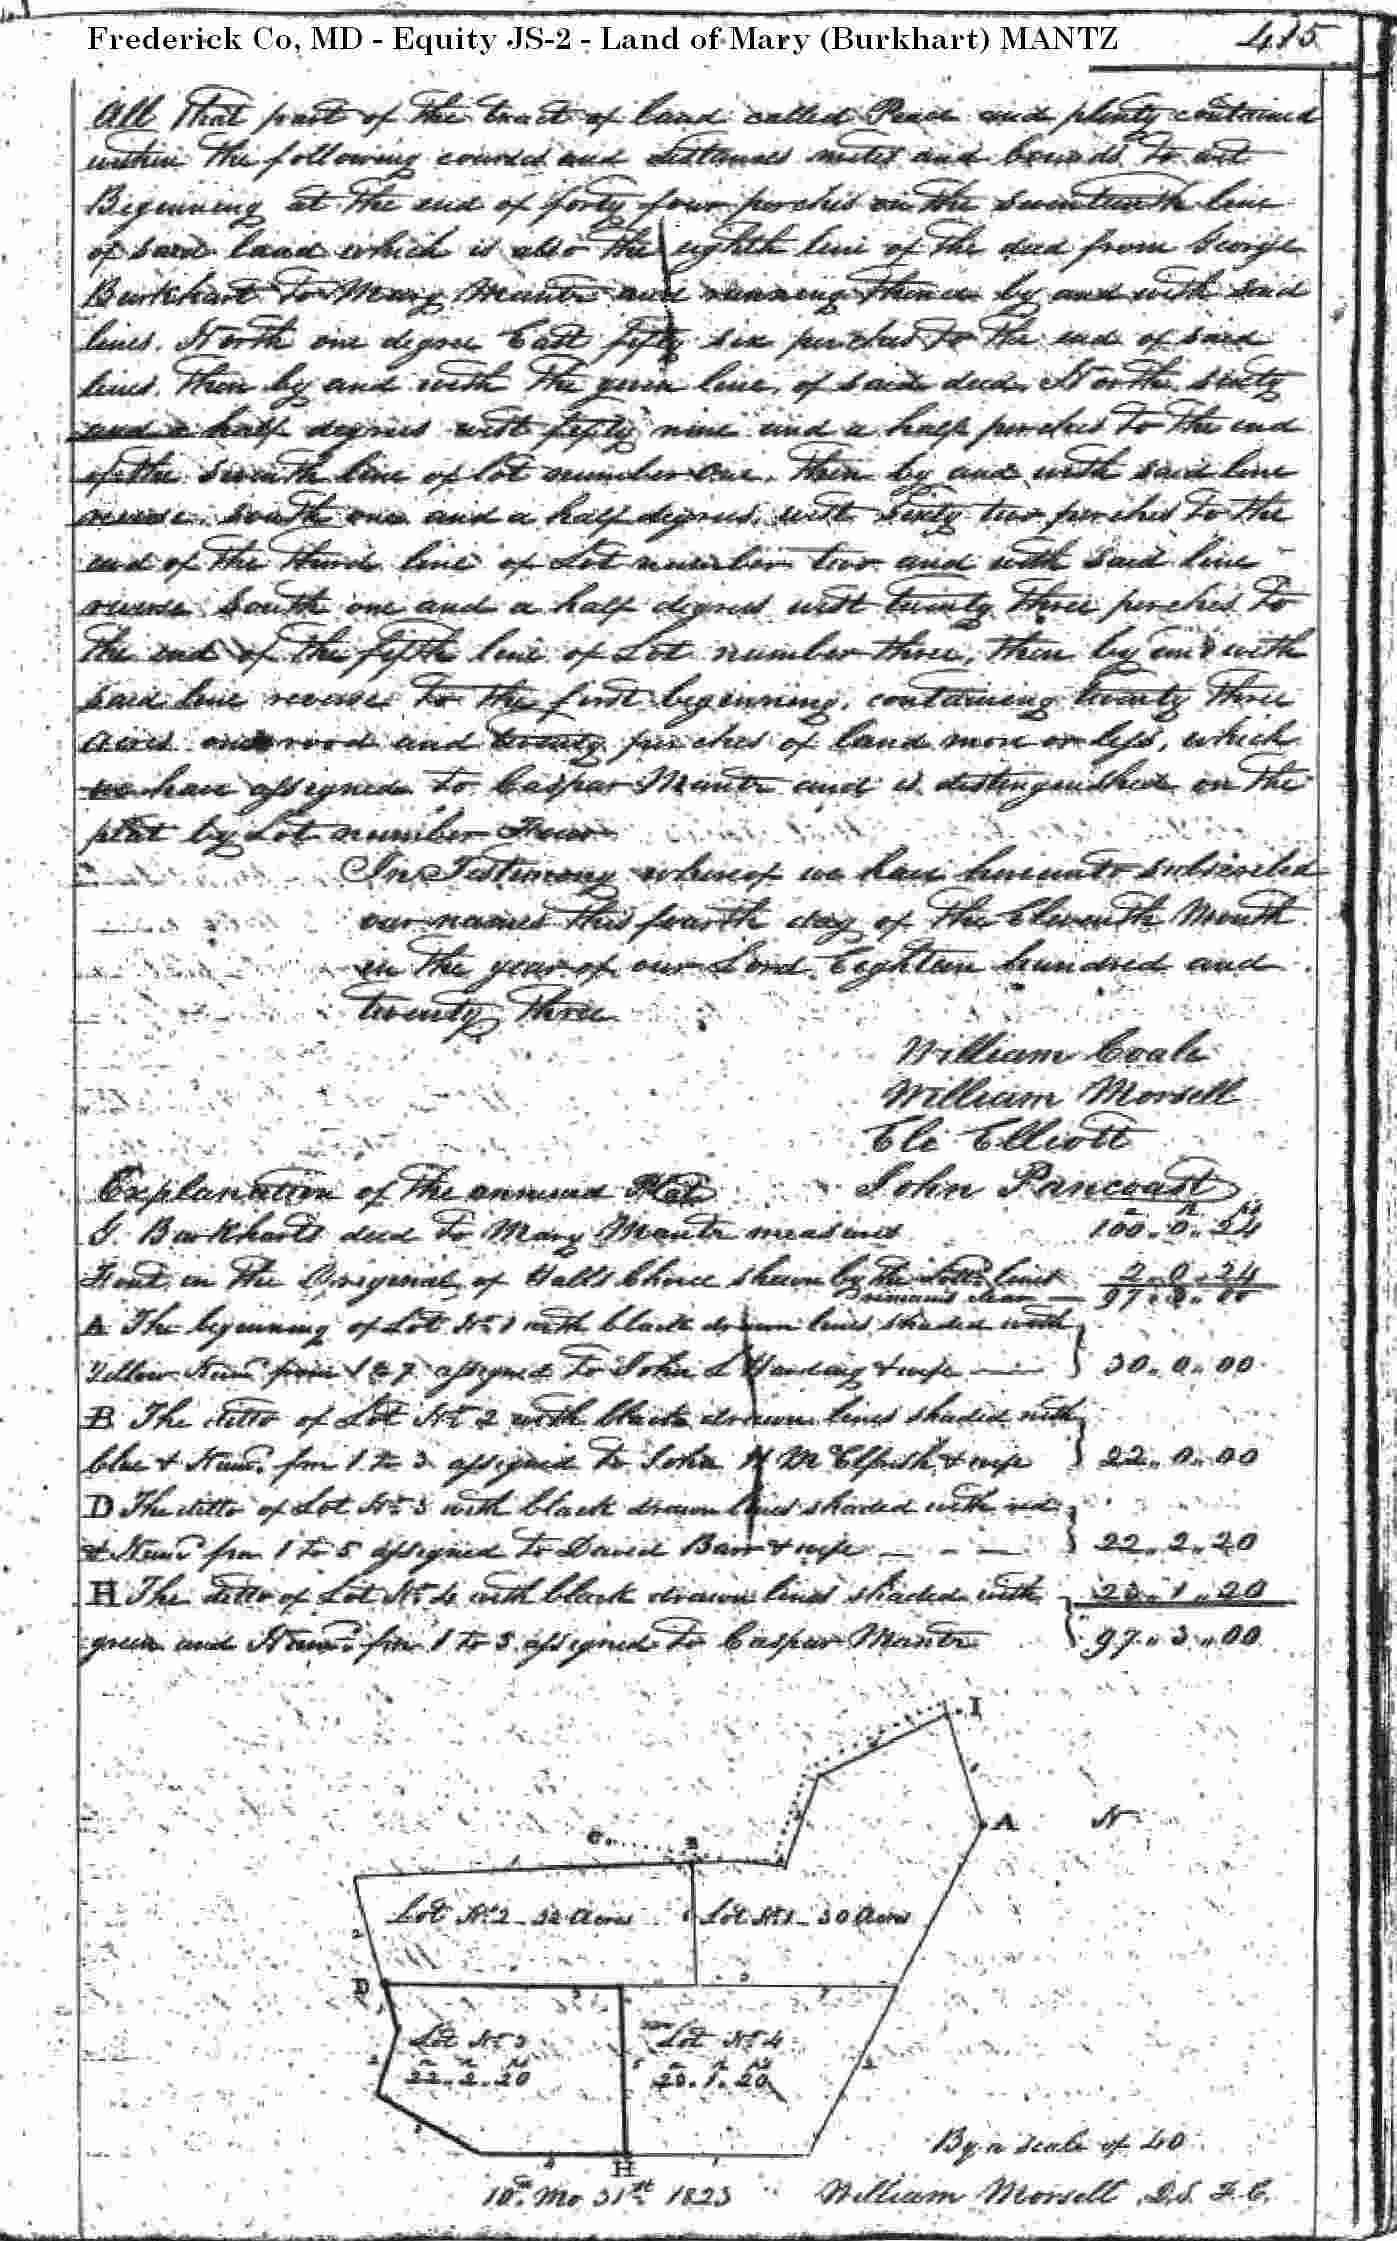 Frederick Co, MD - Equity JS-2 - Land of Mary (Burkhart) MANTZ
415
All that part of the tract of land called Peace and plenty contained
within the following courses and distances metes and bounds to wit
Beginning at the end of forty four perches on the seventeenth line
of said land which is also the eighth line of the deed from George
Burkhart to Mary Mantz and running thence by and with said
lines. North one degree East fifty six perches to the end of said
lines. then by and with the given line, of said deed, North sixty
and a half degrees west fifty nine and a half perches to the end
of the seventh line of lot number one, then by and with said line
reverse, south one and a half degrees, west sixty two perches to the
end of the third line of Lot number two and with said line
reverse South one and a half degrees west twenty three perches to
the end of the fifth line of Lot number three, then by and with
said line reverse to the first beginning, containing twenty three
acres one rood and twenty perches of land more or less, which
we have assigned to Caspar Mantz and is distinguished on the
plat by Lot number Four
In Testimony whereof we have hereunto subscribed
our names this fourth day of the Eleventh Month
in the year of our Lord Eighteen hundred and
twenty three
William Coale
William Morsell
Eli Elliott
Explanation of the annexed Plat
John Pancoast
G. Burkharts deed to Mary Mantz measures 100. 0. 24
in the Original of Halls Choice shewn by the lines 2. 0. 24
remains clear
A The beginning of Lot No 1 with black drawn lines shaded with
Yellow Num from 1 to 7 assigned to John L Harding & wife 30. 0. 00
B The ditto of Lot No 2 with black drawn lines shaded with
blue & Num. frm 1 to 3 assigned to John H McElfresh & wife 22. 0. 00
D The ditto of Lot No 3 with black drawn lines shaded with red
& Num frm 1 to 5 assigned to David Barr & wife 22. 2. 20
H The ditto of Lot No 4 with black drawn lines shaded with 23. 1. 20
green and Num. frm 1 to 5 assigned to Caspar Mantz 97. 3. 00
I
A
N
C
B
Lot No 2 - 22 Acres
Lot No 1 - 30 Acres
D
Lot No 3
22. 2. 20
Lot No 4
23. 1. 20
H
By a scale of 40
10th Mo 31st 1823
William Morsell D.S. F.C.